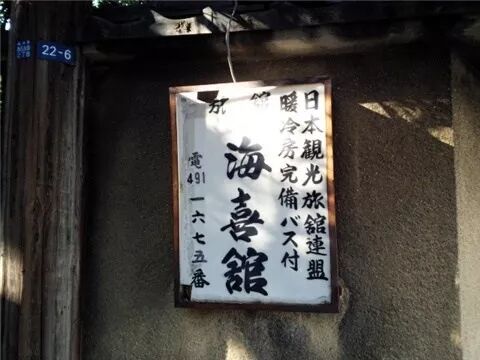 日本観光旅舘連盟
暖冷房完備バス付
旅舘
海喜舘
電491一六七五番
22-6